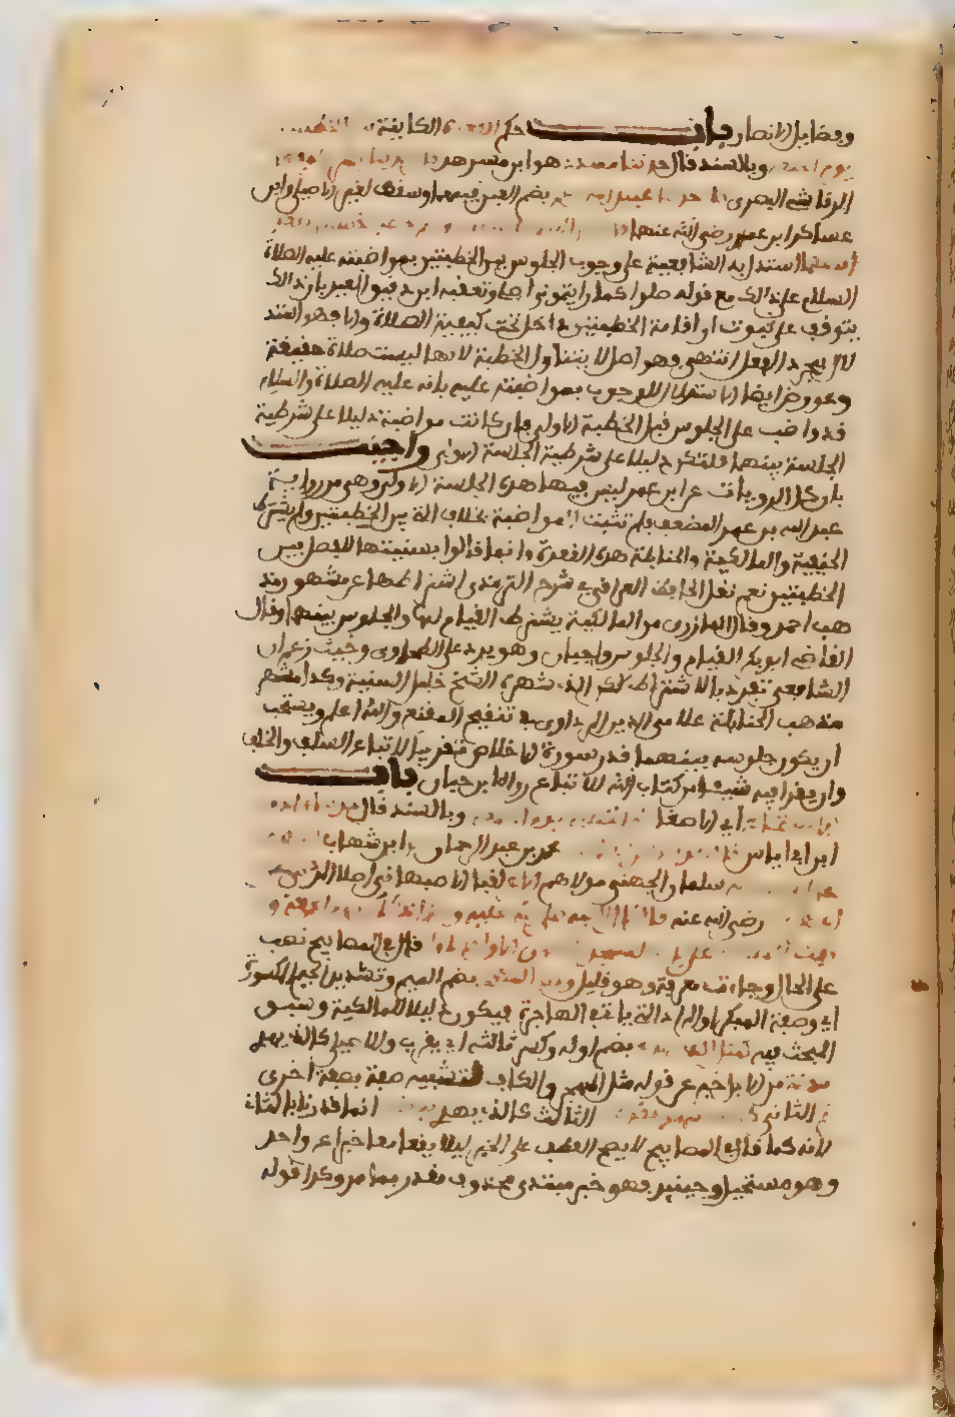 وفضايل الانصار باب حكم القعدة الكاينة بين الخطبتين
يوم الجمعة وبالسند قال حدثنا مسدد هو ابن مسرهد
الرقاشي البصري حدثنا عبيد الله بضم العين فيهما وسقط لغير الاصيلي وابن
عساكر ابن عمر رضي الله عنهما
استدل به الشافعية على وجوب الجلوس بين الخطبتين لمواظبته عليه الصلاة
السلام على ذلك مع قوله صلوا كما رايتموني اصلي وتعقبه ابن دقيق العيد بان ذلك
يتوقف على ثبوت ان اقامة الخطبتين داخل تحت كيفية الصلاة والا فهو استد
لال بمجرد الفعل انتهى فهو اصل لا يتناول الخطبة لانها ليست صلاة حقيقة
وعورض ايضا الاستدلال للوجوب بمواظبته عليه بانه عليه الصلاة والسلام
قد واظب على الجلوس قبل الخطبة الاولى فان كانت مواظبته دليلا على شرطية
الجلسة بينهما فلتكن دليلا على شرطية الجلسة الاولى واجيب
بان كل الروايات عن ابن عمر ليس فيها هذه الجلسة الاولى وهي من رواية
عبد الله بن عمر المضعف فلم تثبت المواظبة بخلاف التي بين الخطبتين ولم يشترط
الحنفية والمالكية والحنابلة هذه القعدة وانما قالوا بسنيتها للفصل بين
الخطبتين نعم نقل الحافظ العراقي في شرح الترمذي اشتراطها عن مشهور مذ
هب احمد وقال المازري من المالكية يشترط القيام لهما والجلوس بينهما وقال
القاضي ابو بكر القيام والجلوس واجبان وهو يرد على الطحاوي حيث زعم ان
الشافعي تفرد بالاشتراط لكن الذي شهره الشيخ خليل السنية وكذا مشهر
مذهب الحنابلة علاء الدين المرداوي في تنقيح المقنع والله اعلم ويستحب
ان يكون جلوسه بينهما قدر سورة الاخلاص تقريبا لاتباع السلف والخلف
وان يقرا فيه شيئا من كتاب الله للاتباع رواه ابن حبان باب
اي الاصغا وبالسند قال حدثنا ادم
ابن ابي اياس محمد بن عبد الرحمان ابن شهاب
سلمان الجهني مولاهم لقبا الاصبهاني اصلا المدني
رضي الله عنه قال قال النبي صلى الله عليه وسلم اذا كان يوم الجمعة و
على باب المسجد الاول فالاول قال في المصابيح نصب
على الحال وجاءت معرفة وهو قليل ومثل المهجر بضم الميم وتشديد الجيم المكسورة
اي وصفة المبكر او المراد الذي ياتي في الهاجرة فيكون دليلا للمالكية وسبق
البحث فيه كمثل الذي يهدي بضم اوله وكسر ثالثه اي يقرب وللاصيلي كالذي يهدي
بدنة من الابل خبر عن قوله مثل المهجر والكاف لتشبيه صفة بصفة اخرى
ثم الثاني كالذي يهدي بقرة الثالث كالذي يهدي انما قدرنا بالثالث
لانه كما قال في المصابيح لا يصح العطف على الخبر ليلا يقعا معا خبرا عن واحد
وهو مستحيل وحينئذ فهو خبر مبتدا محذوف مقدر بما مر وكذا قوله